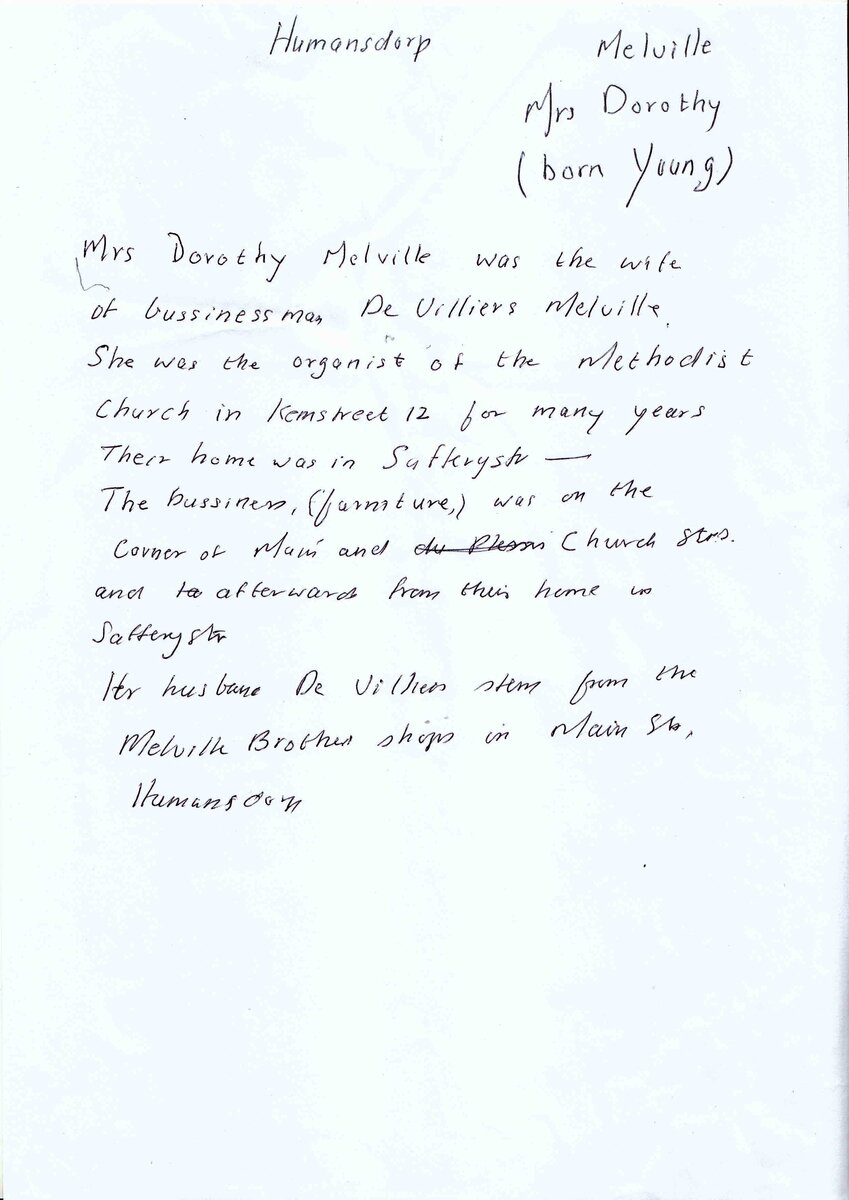 Humansdorp Melville
Mrs Dorothy
(born Young)
Mrs Dorothy Melville was the wife
of bussinessman De Villiers Melville.
She was the organist of the Methodist
Church in Kemstreet 12 for many years
Their home was in Saffrystr —
The bussiness, (furniture,) was on the
Corner of Main and du Plessis Church Strs.
and to afterwards from their home in
Safferystr
Her husband De Villiers stem from the
Melville Brothers shops in Main Str,
Humansdorp